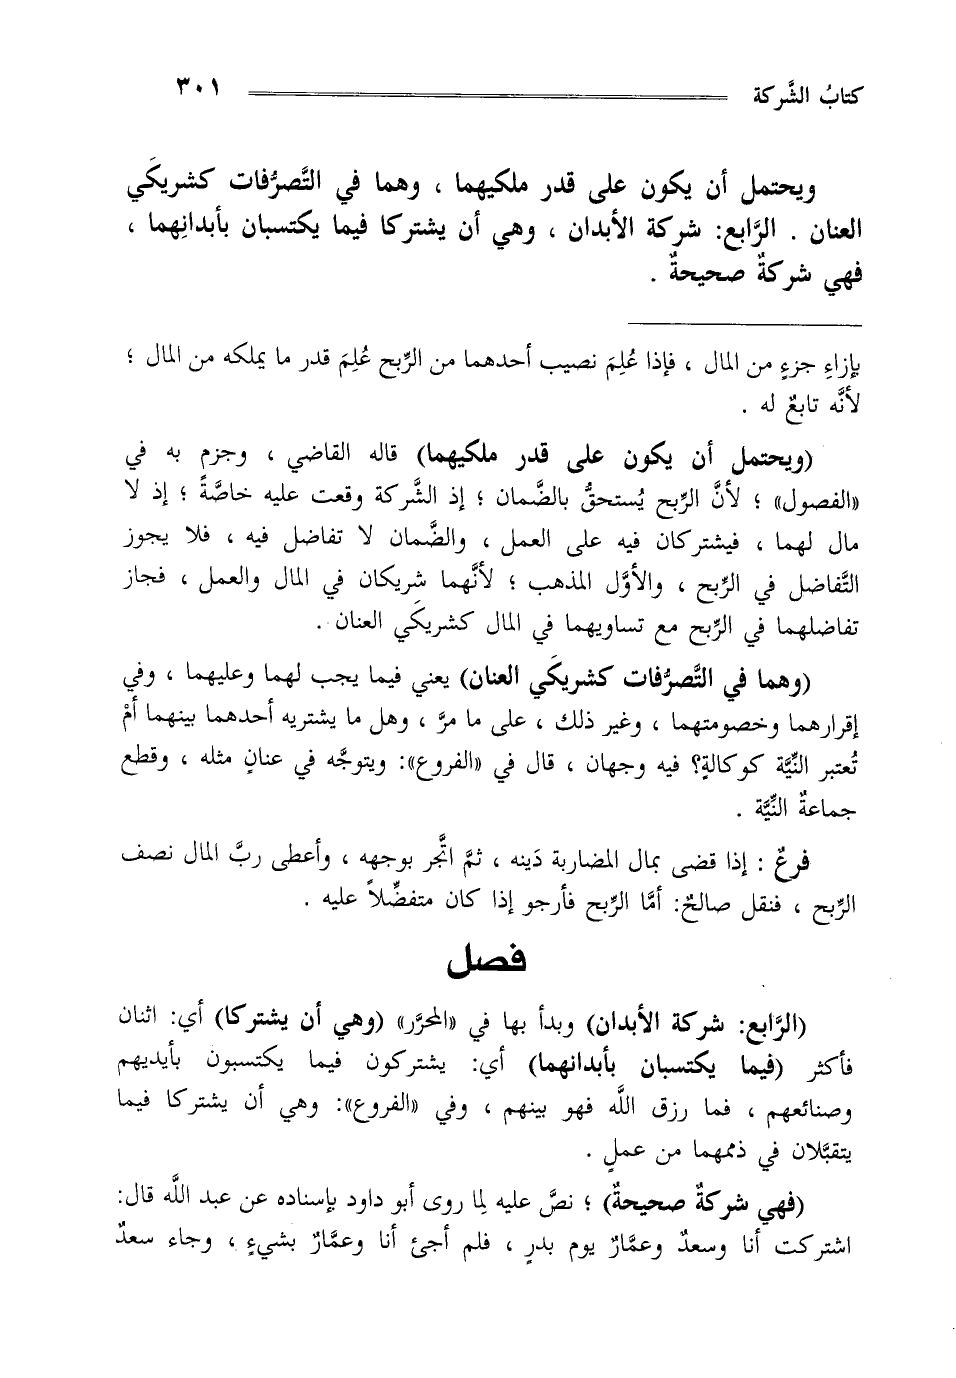 كتابُ الشَّركة ٣٠١
ويحتمل أن يكون على قدر ملكيهما ، وهما في التَّصرُّفات كشريكَي
العنان . الرَّابع: شركة الأبدان ، وهي أن يشتركا فيما يكتسبان بأبدانِهما ،
فهي شركةٌ صحيحةٌ .
بإزاءِ جزءٍ من المال ، فإذا عُلِمَ نصيب أحدهما من الرِّبح عُلِمَ قدر ما يملكه من المال ؛
لأنَّه تابعٌ له .
(ويحتمل أن يكون على قدر ملكيهما) قاله القاضي ، وجزم به في
«الفصول» ؛ لأنَّ الرِّبح يُستحقُّ بالضَّمان ؛ إذ الشَّركة وقعت عليه خاصَّةً ؛ إذ لا
مال لهما ، فيشتركان فيه على العمل ، والضَّمان لا تفاضل فيه ، فلا يجوز
التَّفاضل في الرِّبح ، والأوَّل المذهب ؛ لأنَّهما شريكان في المال والعمل ، فجاز
تفاضلهما في الرِّبح مع تساويهما في المال كشريكَي العنان .
(وهما في التَّصرُّفات كشريكَي العنان) يعني فيما يجب لهما وعليهما ، وفي
إقرارهما وخصومتهما ، وغير ذلك ، على ما مرَّ ، وهل ما يشتريه أحدهما بينهما أمْ
تُعتبر النِّيَّة كوكالةٍ؟ فيه وجهان ، قال في «الفروع»: ويتوجَّه في عنانٍ مثله ، وقطع
جماعةٌ النِّيَّة .
فرعٌ : إذا قضى بمال المضاربة دَينه ، ثمَّ اتَّجر بوجهه ، وأعطى ربَّ المال نصف
الرِّبح ، فنقل صالحٌ: أمَّا الرِّبح فأرجو إذا كان متفضِّلاً عليه .
فصل
(الرَّابع: شركة الأبدان) وبدأ بها في «المحرَّر» (وهي أن يشتركا) أي: اثنان
فأكثر (فيما يكتسبان بأبدانهما) أي: يشتركون فيما يكتسبون بأيديهم
وصنائعهم ، فما رزق اللَّه فهو بينهم ، وفي «الفروع»: وهي أن يشتركا فيما
يتقبَّلان في ذممهما من عملٍ .
(فهي شركةٌ صحيحةٌ) ؛ نصَّ عليه لما روى أبو داود بإسناده عن عبد اللَّه قال:
اشتركت أنا وسعدٌ وعمَّارٌ يوم بدرٍ ، فلم أجئ أنا وعمَّارٌ بشيءٍ ، وجاء سعدٌ